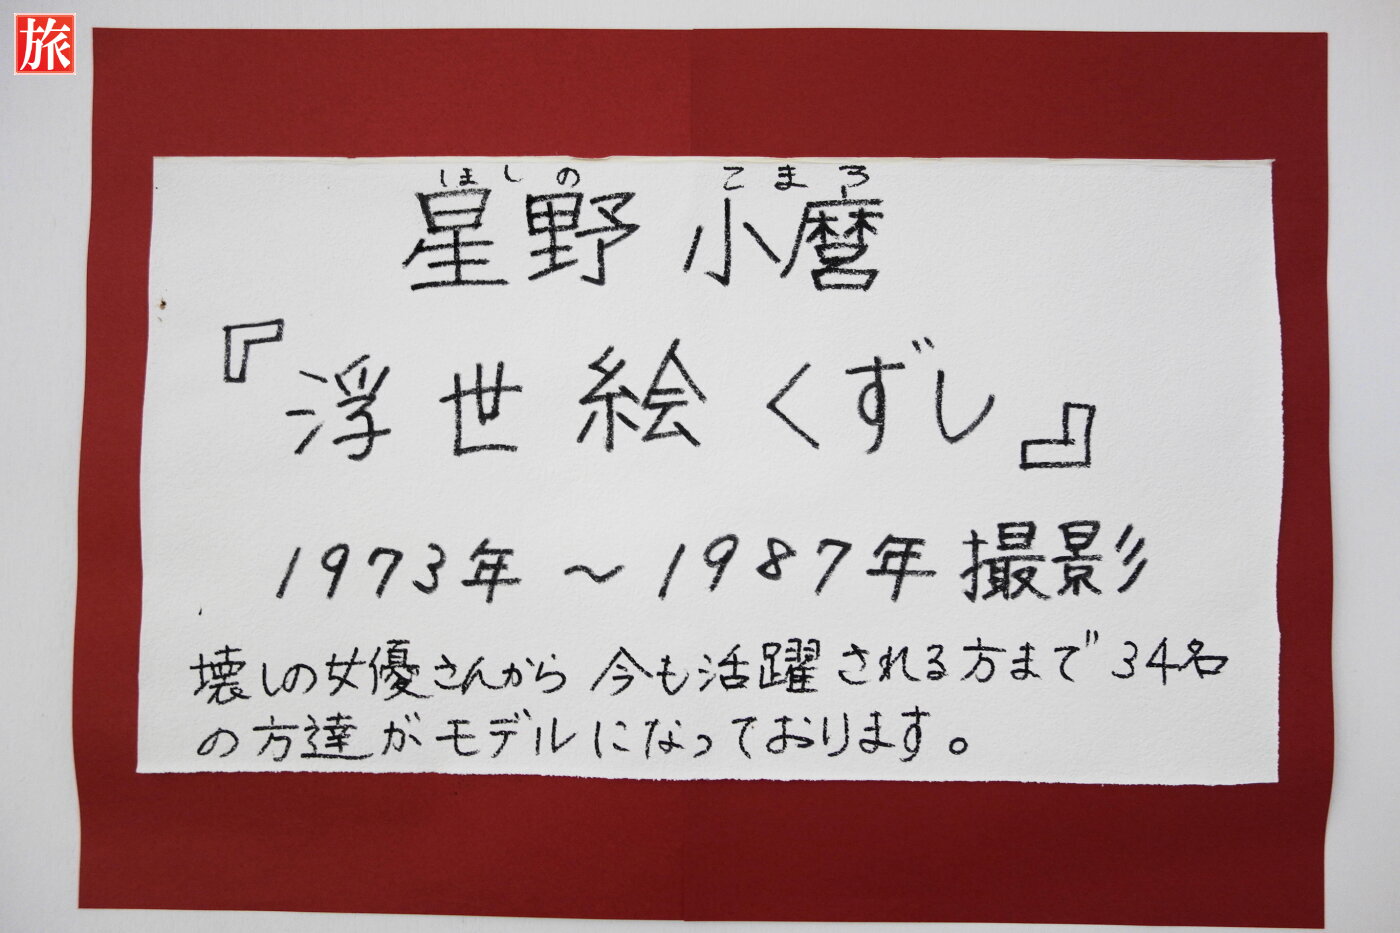 旅
ほしの こまろ
星野 小麿
『浮世絵くずし』
1973年～1987年 撮影
壊しの女優さんから 今も活躍される方まで 34名
の方達がモデルになっております。